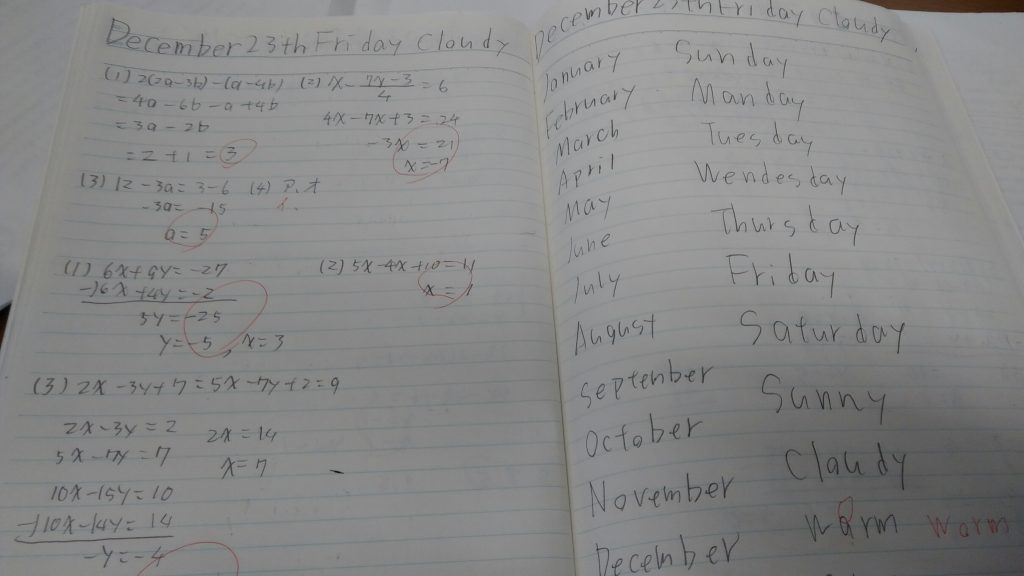 December 23th Friday Cloudy
(1) 2(2a-3b)-(a-4b) (2) x - 7x-3/4 = 6
= 4a - 6b - a + 4b
4x - 7x + 3 = 24
= 3a - 2b
-3x = 21
= 2 + 1 = 3
x = -7
(3) 12 - 3a = 3 - 6 (4) P.t
-3a = -15
a = 5
(1) 6x + 9y = -27
-)6x + 4y = -2
5y = -25
y = -5, x = 3
(2) 5x - 4x + 10 = 11
x = 1
(3) 2x - 3y + 7 = 5x - 7y + 2 = 9
2x - 3y = 2
2x = 14
5x - 7y = 7
x = 7
10x - 15y = 10
-)10x - 14y = 14
-y = -4
December 23th Friday Cloudy
January
February
March
April
May
June
July
August
September
October
November
December
Sunday
Manday
Tuesday
Wendesday
Thursday
Friday
Saturday
Sunny
Claudy
warm warm